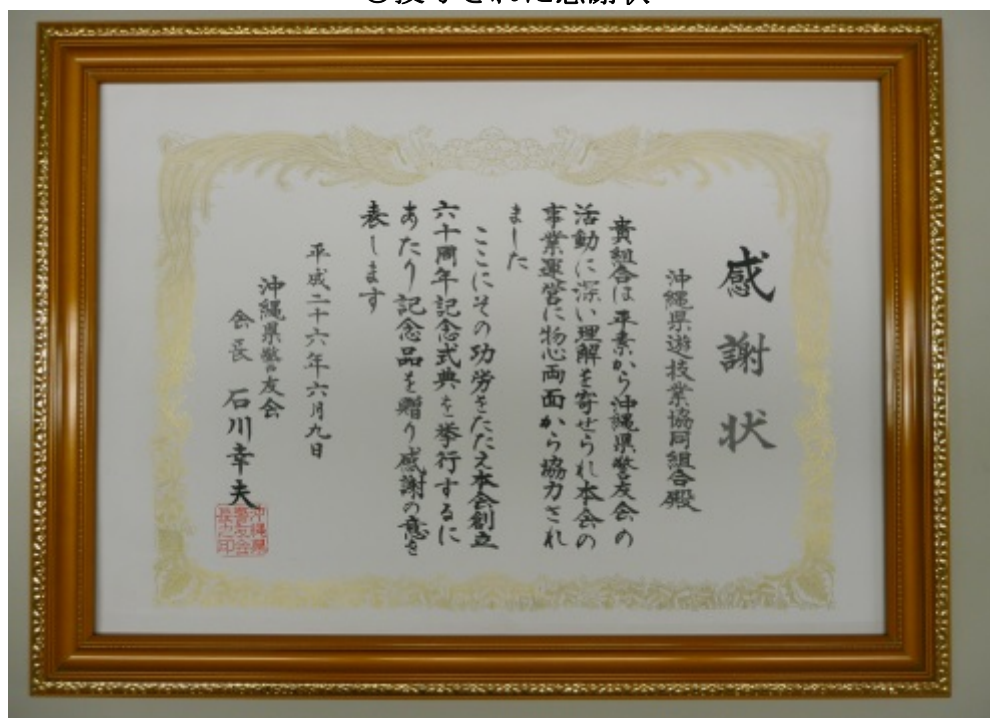 感謝状
沖縄県遊技業協同組合殿
貴組合は平素から沖縄県警友会の
活動に深い理解を寄せられ本会の
事業運営に物心両面から協力され
ました
ここにその功労をたたえ本会創立
六十周年記念式典を挙行するに
あたり記念品を贈り感謝の意を
表します
平成二十六年六月九日
沖縄県警友会
会長 石川幸夫
沖縄県
警友会
長之印